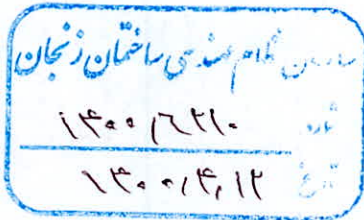 سازمان نظام مهندسی ساختمان زنجان
شماره ۱۴۰۰/۶۲۱۰
تاریخ ۱۴۰۰/۴/۱۲